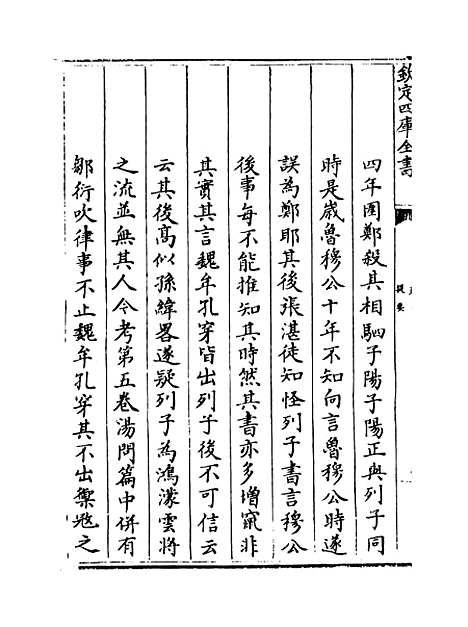 欽定四庫全書
提要
四年圍鄭殺其相駟子陽子陽正與列子同
時是嵗魯穆公十年不知向言魯穆公時遂
誤為鄭耶其後張湛徒知怪列子書言穆公
後事每不能推知其時然其書亦多增竄非
其實其言魏牟孔穿皆出列子後不可信云
云其後髙似孫緯畧遂疑列子為鴻濛雲將
之流並無其人今考第五卷湯問篇中併有
鄒衍吹律事不止魏牟孔穿其不出禦㓂之